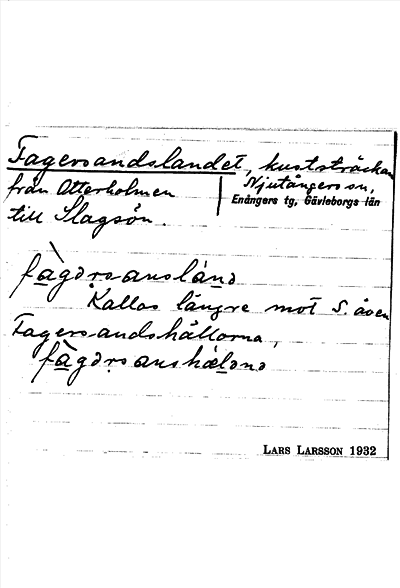 Fagersandslandet, kuststräckan
från Otterholmen
Njutångers sn,
Enångers tg, Gävleborgs län
till Slagsön.
fàgəṛsanslánə
Kallas längre mot S. även
Fagersandshällorna,
fàgəṛsanshæləṇə
LARS LARSSON 1932